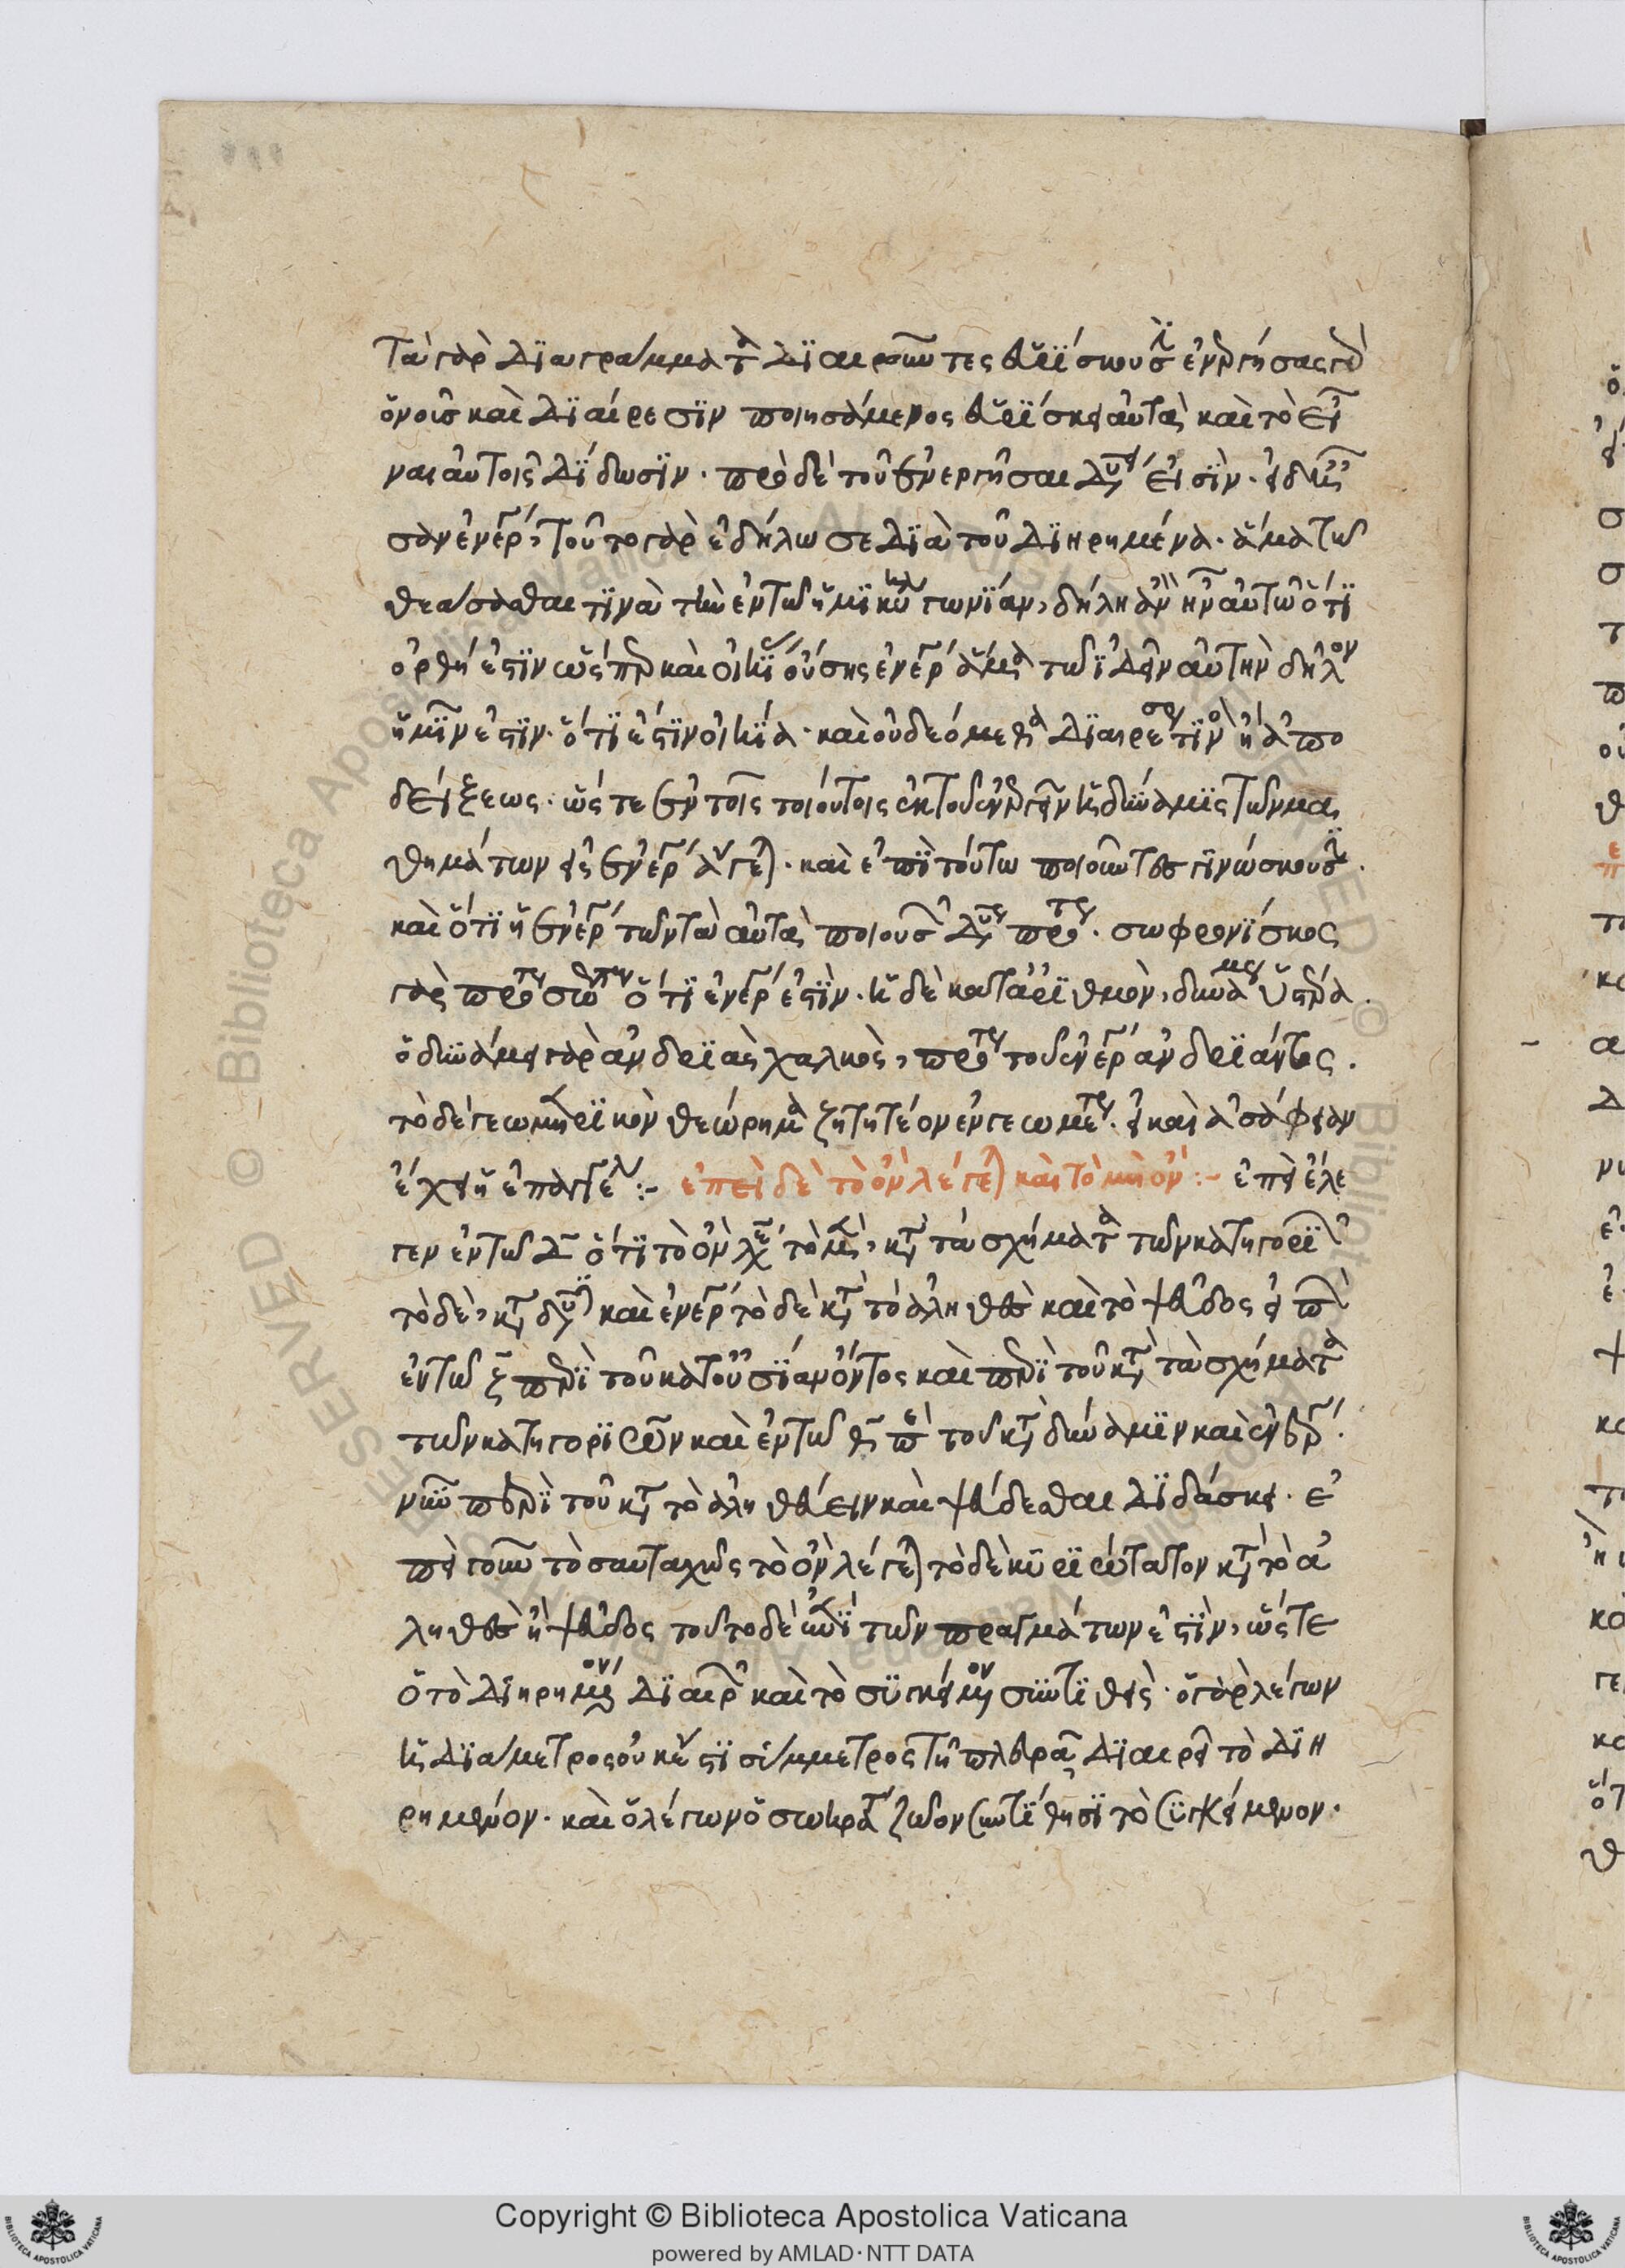 Τὰ γὰρ διαγράμματα διαιροῦντες εὑρίσκουσιν ἐνεργήσας γὰρ
ὁ νοῦς καὶ διαίρεσιν ποιησάμενος εὑρίσκει αὐτὰ καὶ τὸ εἶ
ναι αὐτοῖς δίδωσιν. πρὸ δὲ τοῦ ἐνεργῆσαι δυνάμει εἰσὶν. εἰ δ' ἦ
σαν ἐνεργείᾳ, τοῦτο γὰρ ἐδήλωσε διὰ τοῦ διῃρημένα. ἅμα τῷ
θεάσασθαι τινὰ τὴν ἐν τῷ ἡμικυκλίῳ γωνίαν, δήλη ἂν ἦν αὐτῷ ὅτι
ὀρθή ἐστιν ὥσπερ καὶ οἰκίας οὔσης ἐνεργείᾳ ἅμα τῷ ἰδεῖν αὐτὴν δῆλον
ἡμῖν ἐστιν. ὅτι ἐστὶν οἰκία. καὶ οὐ δεόμεθα διαιρέσεως τινὸς ἢ ἀπο
δείξεως. ὥστε ἐν τοῖς τοιούτοις ἐκ τοῦ ἐνεργεῖν ἡ δύναμις τῶν μα
θημάτων εἰς ἐνέργειαν ἄγεται. καὶ ἐπὶ τούτω ποιοῦντες γινώσκουσι.
καὶ ὅτι ἡ ἐνέργεια τῶν τὰ αὐτὰ ποιούσης δυνάμεως προτέρα. σωφρονίσκος
ὅτι ἐνεργείᾳ ἐστὶν. ἡ δὲ κατ' ἀριθμὸν, δυνάμεως ὑστέρα.
ὁ δυνάμει γὰρ ἀνδριὰς χαλκὸς, πρότερος τοῦ ἐνεργείᾳ ἀνδριάντος.
τὸ δὲ γεωμετρικὸν θεώρημα ζητητέον ἐν γεωμετρίᾳ. εἰ καὶ ἀσάφειαν
ἔχει ἡ ἐπαγγελία :- ἐπεὶ δὲ τὸ ὂν λέγεται καὶ τὸ μὴ ὂν :- ἐπεὶ ἔλε
γεν ἐν τῷ Δ ὅτι τὸ ὂν λέγεται τὸ μὲν, κατὰ τὰ σχήματα τῶν κατηγοριῶν
τὸ δὲ, κατὰ δύναμιν καὶ ἐνέργειαν τὸ δὲ κατὰ τὸ ἀληθὲς καὶ τὸ ψεῦδος εἶπε
ἐν τῷ ζ περὶ τοῦ κατ' οὐσίαν ὄντος καὶ περὶ τοῦ κατὰ τὰ σχήματα
τῶν κατηγοριῶν καὶ ἐν τῷ θ περὶ τοῦ κατὰ δύναμιν καὶ ἐνέργειαν.
νῦν περὶ τοῦ κατὰ τὸ ἀληθεύειν καὶ ψεύδεσθαι διδάσκει. ἐ
πεὶ γοῦν τοσαυταχῶς τὸ ὂν λέγεται τὸ δὲ κυριώτατον κατὰ τὸ ἀ
ληθὲς ἢ ψεῦδος τοῦτο δὲ ἐπὶ τῶν πραγμάτων ἐστὶν, ὥστε
ὁ τὸ διῃρημένον διαιρῶν καὶ τὸ συγκείμενον συντιθεὶς. ὁ γὰρ λέγων
ἡ διάμετρος οὐκ ἔστι σύμμετρος τῇ πλευρᾷ διαιρεῖ τὸ διῃ
ρημένον. καὶ ὁ λέγων ὁ σωκράτης ζῷον συντίθησι τὸ συγκείμενον.
Copyright © Biblioteca Apostolica Vaticana
powered by AMLAD·NTT DATA